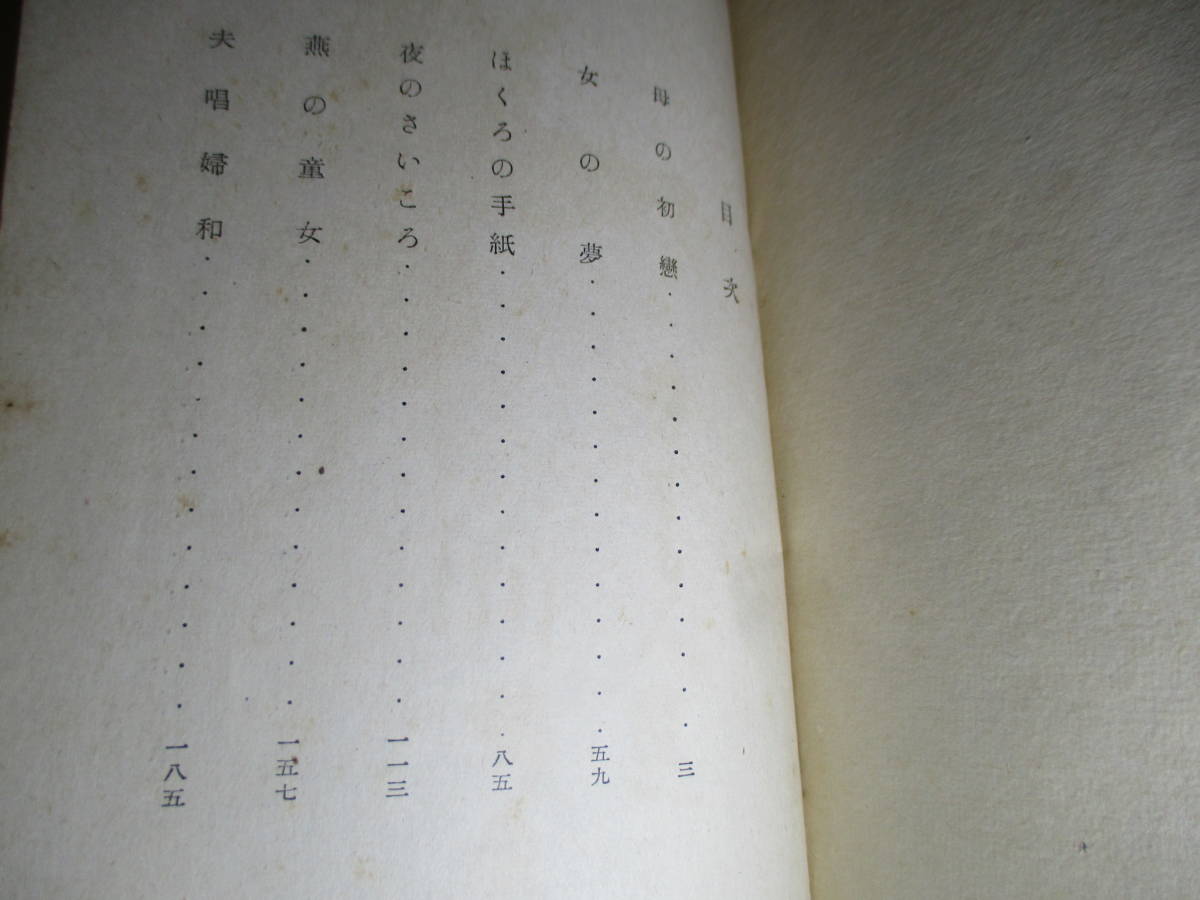 目次
母の初戀・・・・・・・・・・・・・・三
女の夢・・・・・・・・・・・・・・五九
ほくろの手紙・・・・・・・・・・・・・・八五
夜のさいころ・・・・・・・・・・・・・・一一三
燕の童女・・・・・・・・・・・・・・一五七
夫唱婦和・・・・・・・・・・・・・・一八五